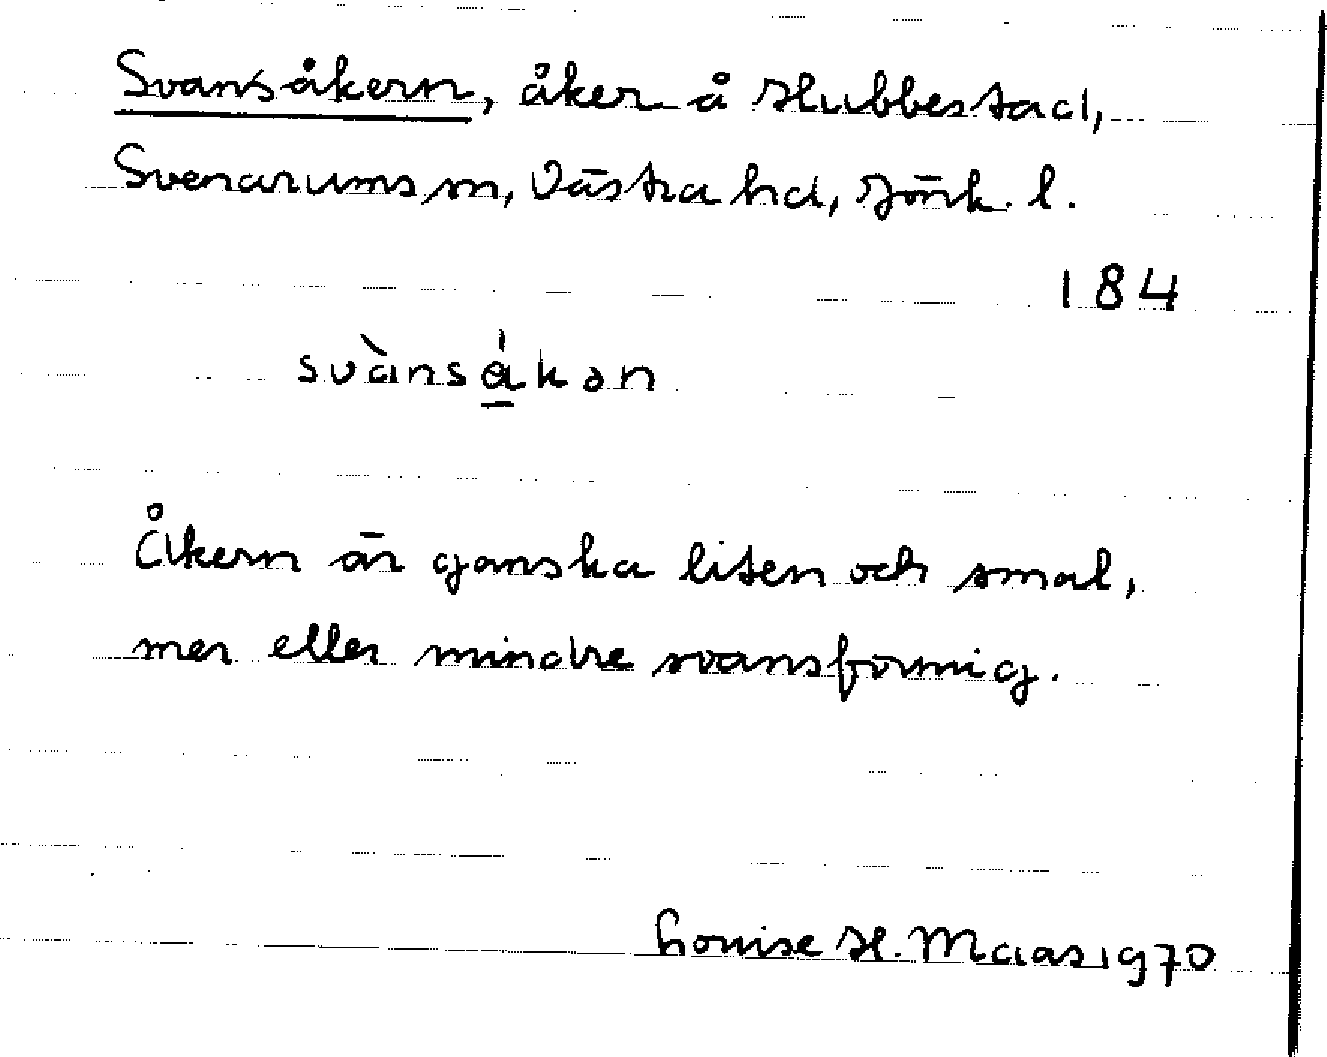 Svansåkern, åker å Hubbestad,
Svenarums sn, Västra hd, Jönk. l.
184
svànsákən
Åkern är ganska liten och smal,
mer eller mindre svansformig.
Louise H. Maas 1970